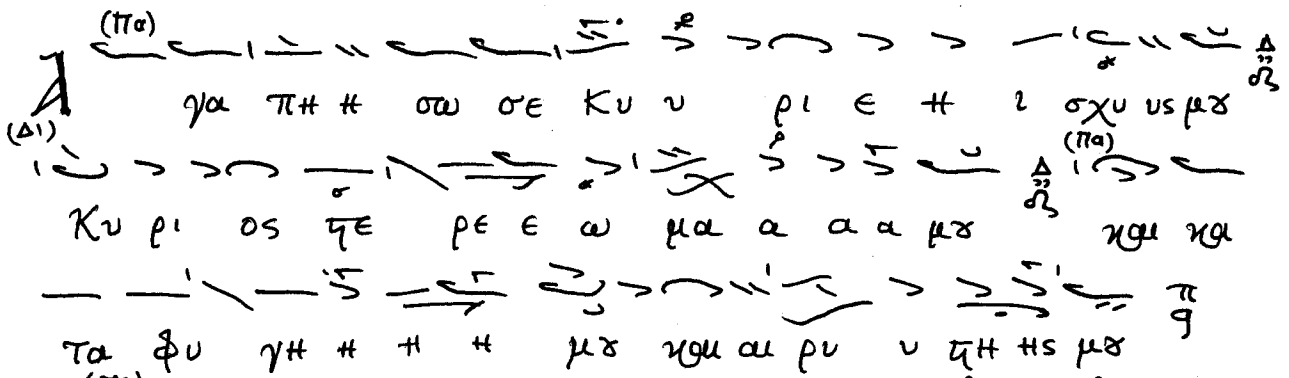 (Πα)
Α γα πη η σω σε Κυ υ ρι ε η ι σχυ υς μȣ Δ
(Δι) (Πα)
Κυ ρι ος ϛε ρε ε ω μα α α α μȣ Δ ϗαι ϗα
τα φυ γη η η η μȣ ϗαι αι ρυ υ ϛη ης μȣ π q